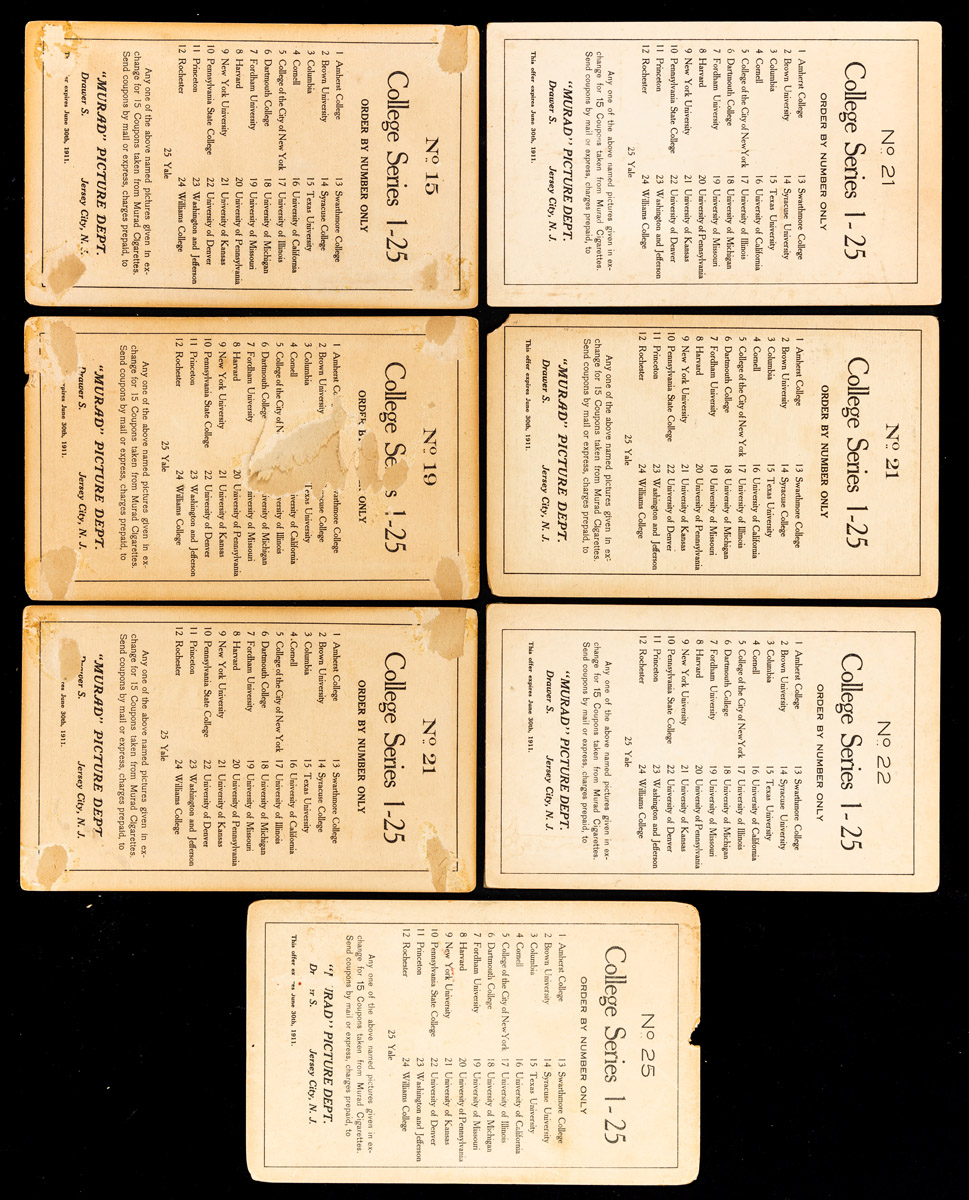 No. 15
College Series 1-25
ORDER BY NUMBER ONLY
1 Amherst College 13 Swarthmore College
2 Brown University 14 Syracuse College
3 Columbia 15 Texas University
4 Cornell 16 University of California
5 College of the City of New York 17 University of Illinois
6 Dartmouth College 18 University of Michigan
7 Fordham University 19 University of Missouri
8 Harvard 20 University of Pennsylvania
9 New York University 21 University of Kansas
10 Pennsylvania State College 22 University of Denver
11 Princeton 23 Washington and Jefferson
12 Rochester 24 Williams College
25 Yale
Any one of the above named pictures given in ex-
change for 15 Coupons taken from Murad Cigarettes.
Send coupons by mail or express, charges prepaid, to
"MURAD" PICTURE DEPT.
Drawer S. Jersey City, N.
expires June 30th, 1911.
No. 21
College Series 1-25
ORDER BY NUMBER ONLY
1 Amherst College 13 Swarthmore College
2 Brown University 14 Syracuse University
3 Columbia 15 Texas University
4 Cornell 16 University of California
5 College of the City of New York 17 University of Illinois
6 Dartmouth College 18 University of Michigan
7 Fordham University 19 University of Missouri
8 Harvard 20 University of Pennsylvania
9 New York University 21 University of Kansas
10 Pennsylvania State College 22 University of Denver
11 Princeton 23 Washington and Jefferson
12 Rochester 24 Williams College
25 Yale
Any one of the above named pictures given in ex-
change for 15 Coupons taken from Murad Cigarettes.
Send coupons by mail or express, charges prepaid, to
"MURAD" PICTURE DEPT.
Drawer S. Jersey City, N. J.
This offer expires June 30th, 1911.
No. 19
College Se s 1-25
ORDER ONLY
1 Amherst Swarthmore College
2 Brown University College
3 Columbia Texas University
4 Cornell University of California
5 College of the City of University of Illinois
6 Dartmouth College University of Michigan
7 Fordham University University of Missouri
8 Harvard 20 University of Pennsylvania
9 New York University 21 University of Kansas
10 Pennsylvania State College 22 University of Denver
11 Princeton 23 Washington and Jefferson
12 Rochester 24 Williams College
25 Yale
Any one of the above named pictures given in ex-
change for 15 Coupons taken from Murad Cigarettes.
Send coupons by mail or express, charges prepaid, to
"MURAD" PICTURE DEPT.
Drawer S. Jersey City, N. J.
expires June 30th, 1911.
No. 21
College Series 1-25
ORDER BY NUMBER ONLY
1 Amherst College 13 Swarthmore College
2 Brown University 14 Syracuse College
3 Columbia 15 Texas University
4 Cornell 16 University of California
5 College of the City of New York 17 University of Illinois
6 Dartmouth College 18 University of Michigan
7 Fordham University 19 University of Missouri
8 Harvard 20 University of Pennsylvania
9 New York University 21 University of Kansas
10 Pennsylvania State College 22 University of Denver
11 Princeton 23 Washington and Jefferson
12 Rochester 24 Williams College
25 Yale
Any one of the above named pictures given in ex-
change for 15 Coupons taken from Murad Cigarettes.
Send coupons by mail or express, charges prepaid, to
"MURAD" PICTURE DEPT.
Drawer S. Jersey City, N. J.
This offer expires June 30th, 1911.
No. 21
College Series 1-25
ORDER BY NUMBER ONLY
1 Amherst College 13 Swarthmore College
2 Brown University 14 Syracuse College
3 Columbia 15 Texas University
4 Cornell 16 University of California
5 College of the City of New York 17 University of Illinois
6 Dartmouth College 18 University of Michigan
7 Fordham University 19 University of Missouri
8 Harvard 20 University of Pennsylvania
9 New York University 21 University of Kansas
10 Pennsylvania State College 22 University of Denver
11 Princeton 23 Washington and Jefferson
12 Rochester 24 Williams College
25 Yale
Any one of the above named pictures given in ex-
change for 15 Coupons taken from Murad Cigarettes.
Send coupons by mail or express, charges prepaid, to
"MURAD" PICTURE DEPT.
Drawer S. Jersey City, N. J.
June 30th, 1911.
No. 22
College Series 1-25
ORDER BY NUMBER ONLY
1 Amherst College 13 Swarthmore College
2 Brown University 14 Syracuse University
3 Columbia 15 Texas University
4 Cornell 16 University of California
5 College of the City of New York 17 University of Illinois
6 Dartmouth College 18 University of Michigan
7 Fordham University 19 University of Missouri
8 Harvard 20 University of Pennsylvania
9 New York University 21 University of Kansas
10 Pennsylvania State College 22 University of Denver
11 Princeton 23 Washington and Jefferson
12 Rochester 24 Williams College
25 Yale
Any one of the above named pictures given in ex-
change for 15 Coupons taken from Murad Cigarettes.
Send coupons by mail or express, charges prepaid, to
"MURAD" PICTURE DEPT.
Drawer S. Jersey City, N. J.
This offer expires June 30th, 1911.
No. 25
College Series 1-25
ORDER BY NUMBER ONLY
1 Amherst College 13 Swarthmore College
2 Brown University 14 Syracuse University
3 Columbia 15 Texas University
4 Cornell 16 University of California
5 College of the City of New York 17 University of Illinois
6 Dartmouth College 18 University of Michigan
7 Fordham University 19 University of Missouri
8 Harvard 20 University of Pennsylvania
9 New York University 21 University of Kansas
10 Pennsylvania State College 22 University of Denver
11 Princeton 23 Washington and Jefferson
12 Rochester 24 Williams College
25 Yale
Any one of the above named pictures given in ex-
change for 15 Coupons taken from Murad Cigarettes.
Send coupons by mail or express, charges prepaid, to
RAD" PICTURE DEPT.
S. Jersey City, N. J.
This offer June 30th, 1911.